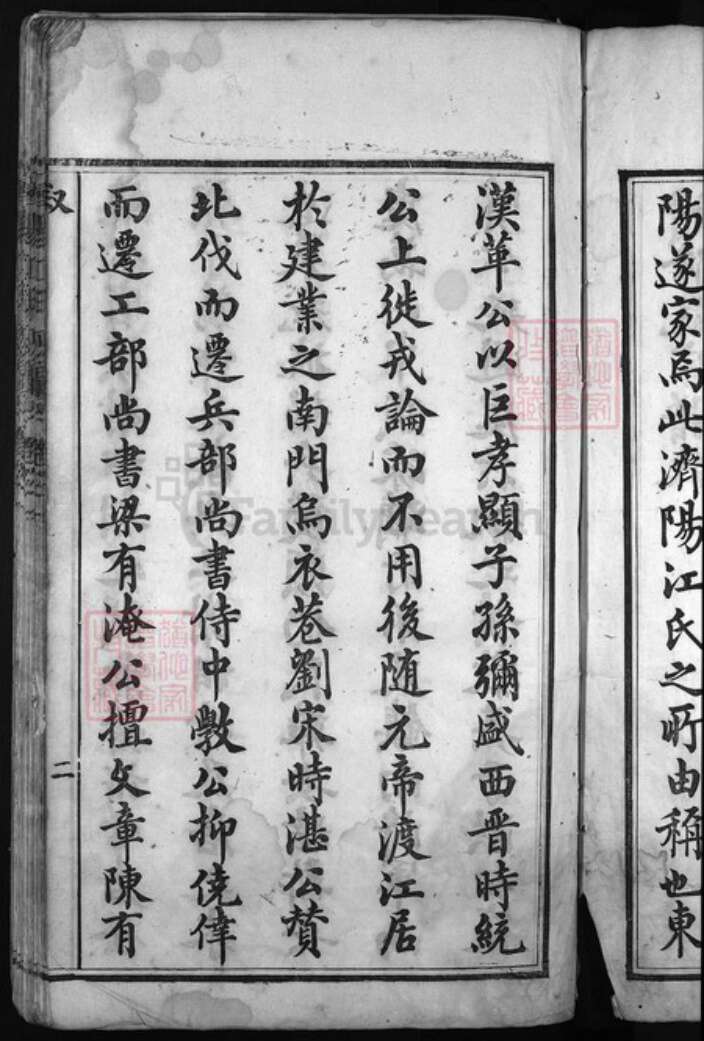 陽遂家焉此濟陽江氏之所由稱也東
漢革公以巨孝顯子孫彌盛西晉時統
公上徙戎論而不用後随元帝渡江居
於建業之南門烏衣巷劉宋時湛公贊
北伐而遷兵部尚書侍中斆公抑僥倖
而遷工部尚書梁有淹公擅文章陳有
二
FamilySearch